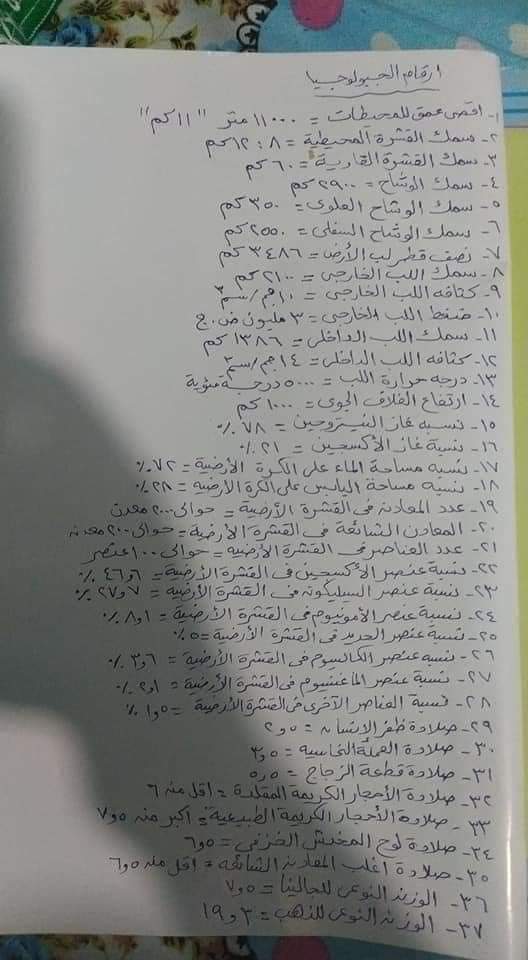 ارقام الجيولوجيا
١- اقصى عمق للمحيطات = ١١٠٠٠ متر "١١ كم"
٢- سمك القشرة المحيطية = ٨ : ١٢ كم
٣- سمك القشرة القارية = ٦٠ كم
٤- سمك الوشاح = ٢٩٠٠ كم
٥- سمك الوشاح العلوى = ٣٥٠ كم
٦- سمك الوشاح السفلى = ٢٥٥٠ كم
٧- نصف قطر لب الأرض = ٣٤٨٦ كم
٨- سمك اللب الخارجى = ٢١٠٠ كم
٩- كثافه اللب الخارجى = ١٠ جم/سم٣
١٠- ضغط اللب الخارجى = ٣ مليون ض.ج
١١- سمك اللب الداخلى = ١٣٨٦ كم
١٢- كثافه اللب الداخلى = ١٤ جم/سم٣
١٣- درجه حرارة اللب = ٥٠٠٠ درجة مئوية
١٤- ارتفاع الغلاف الجوى = ١٠٠٠ كم
١٥- نسبه غاز النيتروجين = ٧٨٪
١٦- نسبة غاز الأكسجين = ٢١٪
١٧- نسبه مساحة الماء على الكرة الأرضية = ٧٢٪
١٨- نسبه مساحة اليابس على الكرة الارضية = ٢٨٪
١٩- عدد المعادن فى القشرة الأرضية = حوالى ٢٠٠٠ معدن
٢٠- المعادن الشائعة فى القشرة الأرضية = حوالى ٢٠٠ معدن
٢١- عدد العناصر فى القشرة الأرضيه = حوالى ١٠٠ عنصر
٢٢- نسبة عنصر الأكسجين فى القشرة الأرضية = ٤٦و٦٪
٢٣- نسبة عنصر السيليكون فى القشرة الأرضية = ٢٧و٧٪
٢٤- نسبة عنصر الألومنيوم فى القشرة الأرضية = ٨و١٪
٢٥- نسبة عنصر الحديد فى القشرة الأرضية = ٥٪
٢٦- نسبه عنصر الكالسيوم فى القشرة الأرضية = ٣و٦٪
٢٧- نسبة عنصر الماغنسيوم فى القشرة الأرضية = ٢و١٪
٢٨- نسبة العناصر الآخرى فى القشرة الأرضية = ١و٥٪
٢٩- صلادة ظفر الإنسان = ٢و٥
٣٠- صلادة العملة النحاسيه = ٣و٥
٣١- صلادة قطعة الزجاج = ٥و٥
٣٢- صلادة الأحجار الكريمة المقلدة = اقل من ٦
٣٣- صلادة الأحجار الكريمة الطبيعية = اكبر من ٧و٥
٣٤- صلادة لوح المخدش الخزفى = ٦و٥
٣٥- صلادة اغلب المعادن الشائعه = اقل من ٦و٥
٣٦- الوزن النوعى للجالينا = ٧و٥
٣٧- الوزن النوعى للذهب = ١٩و٣